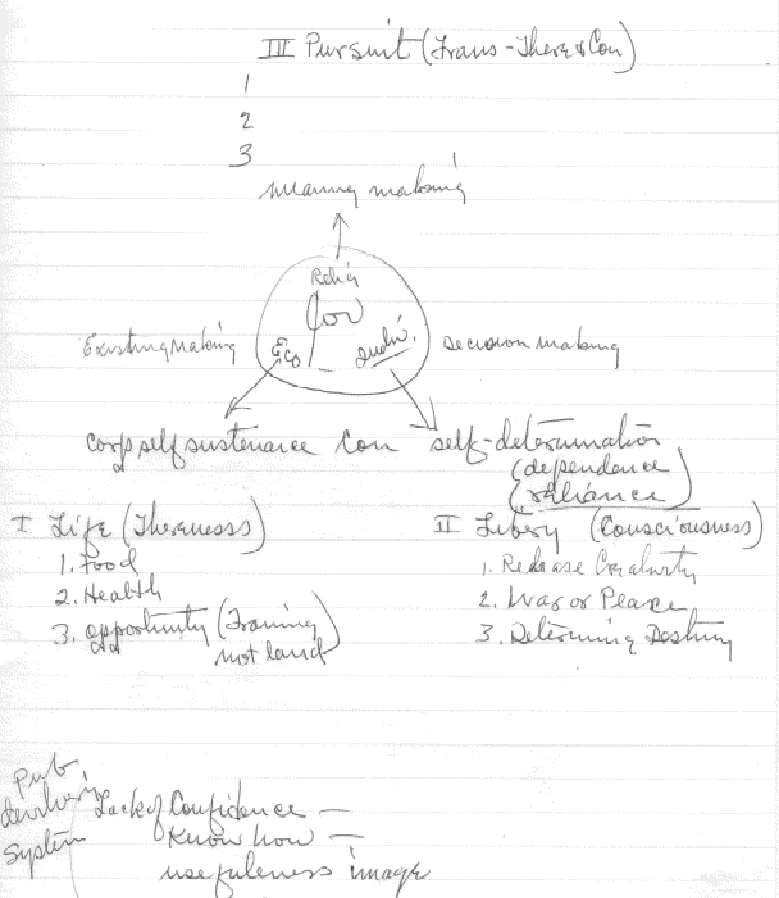 III Pursuit (Trans-There & Con)
1
2
3
meaning making
Relig
Eco
Existing making
decision making
corp self sustenance
Con
self-determination
(dependence
reliance)
I Life (Thereness)
1. Food
2. Health
3. opportunity (Training
not land)
II Libery (Consciousness)
1. Release Creativity
2. War or Peace
3. Determining Destiny
Pub
System
Lack of Confidence —
Know how —
usefulness image